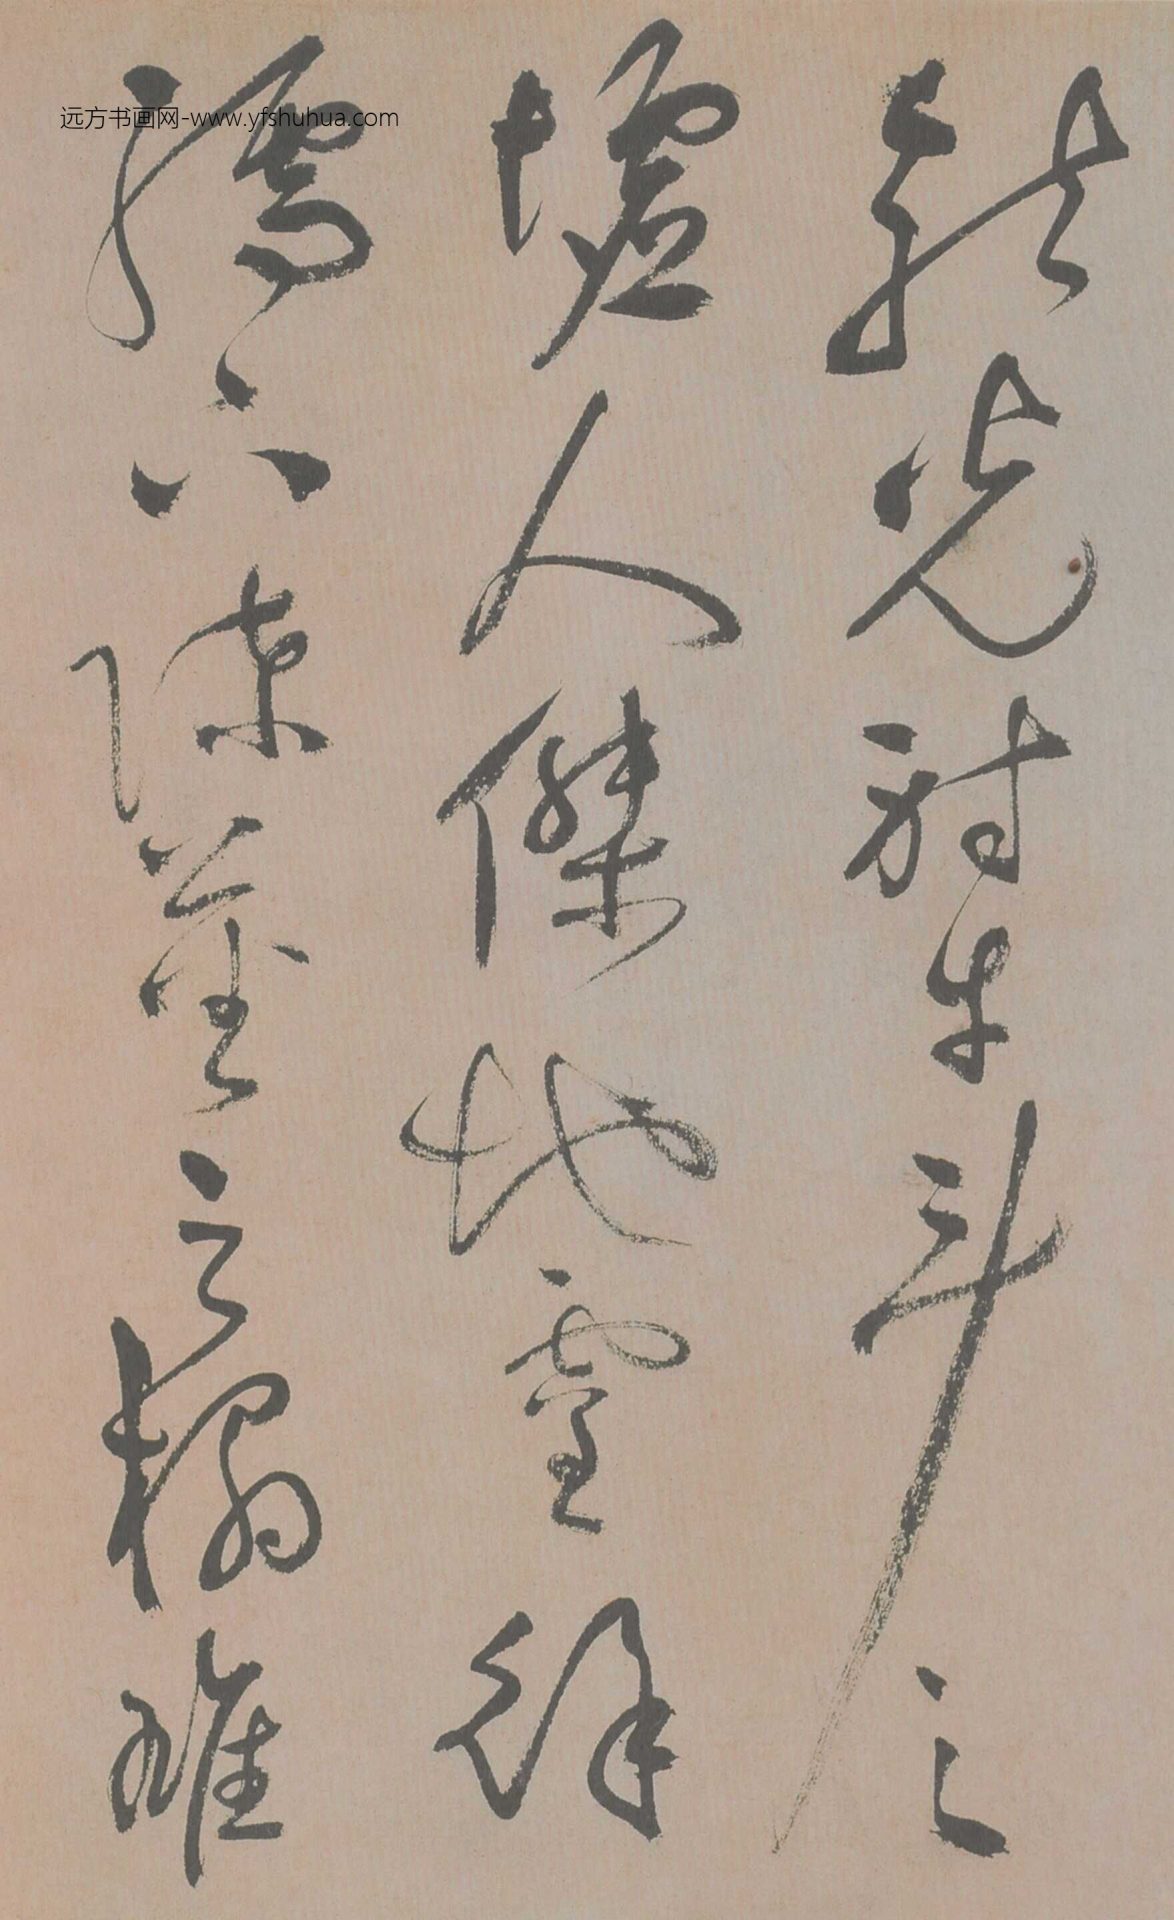 龍光射牛斗之
墟人傑地靈徐
孺下陳蕃之榻雄
远方书画网-www.yfshuhua.com